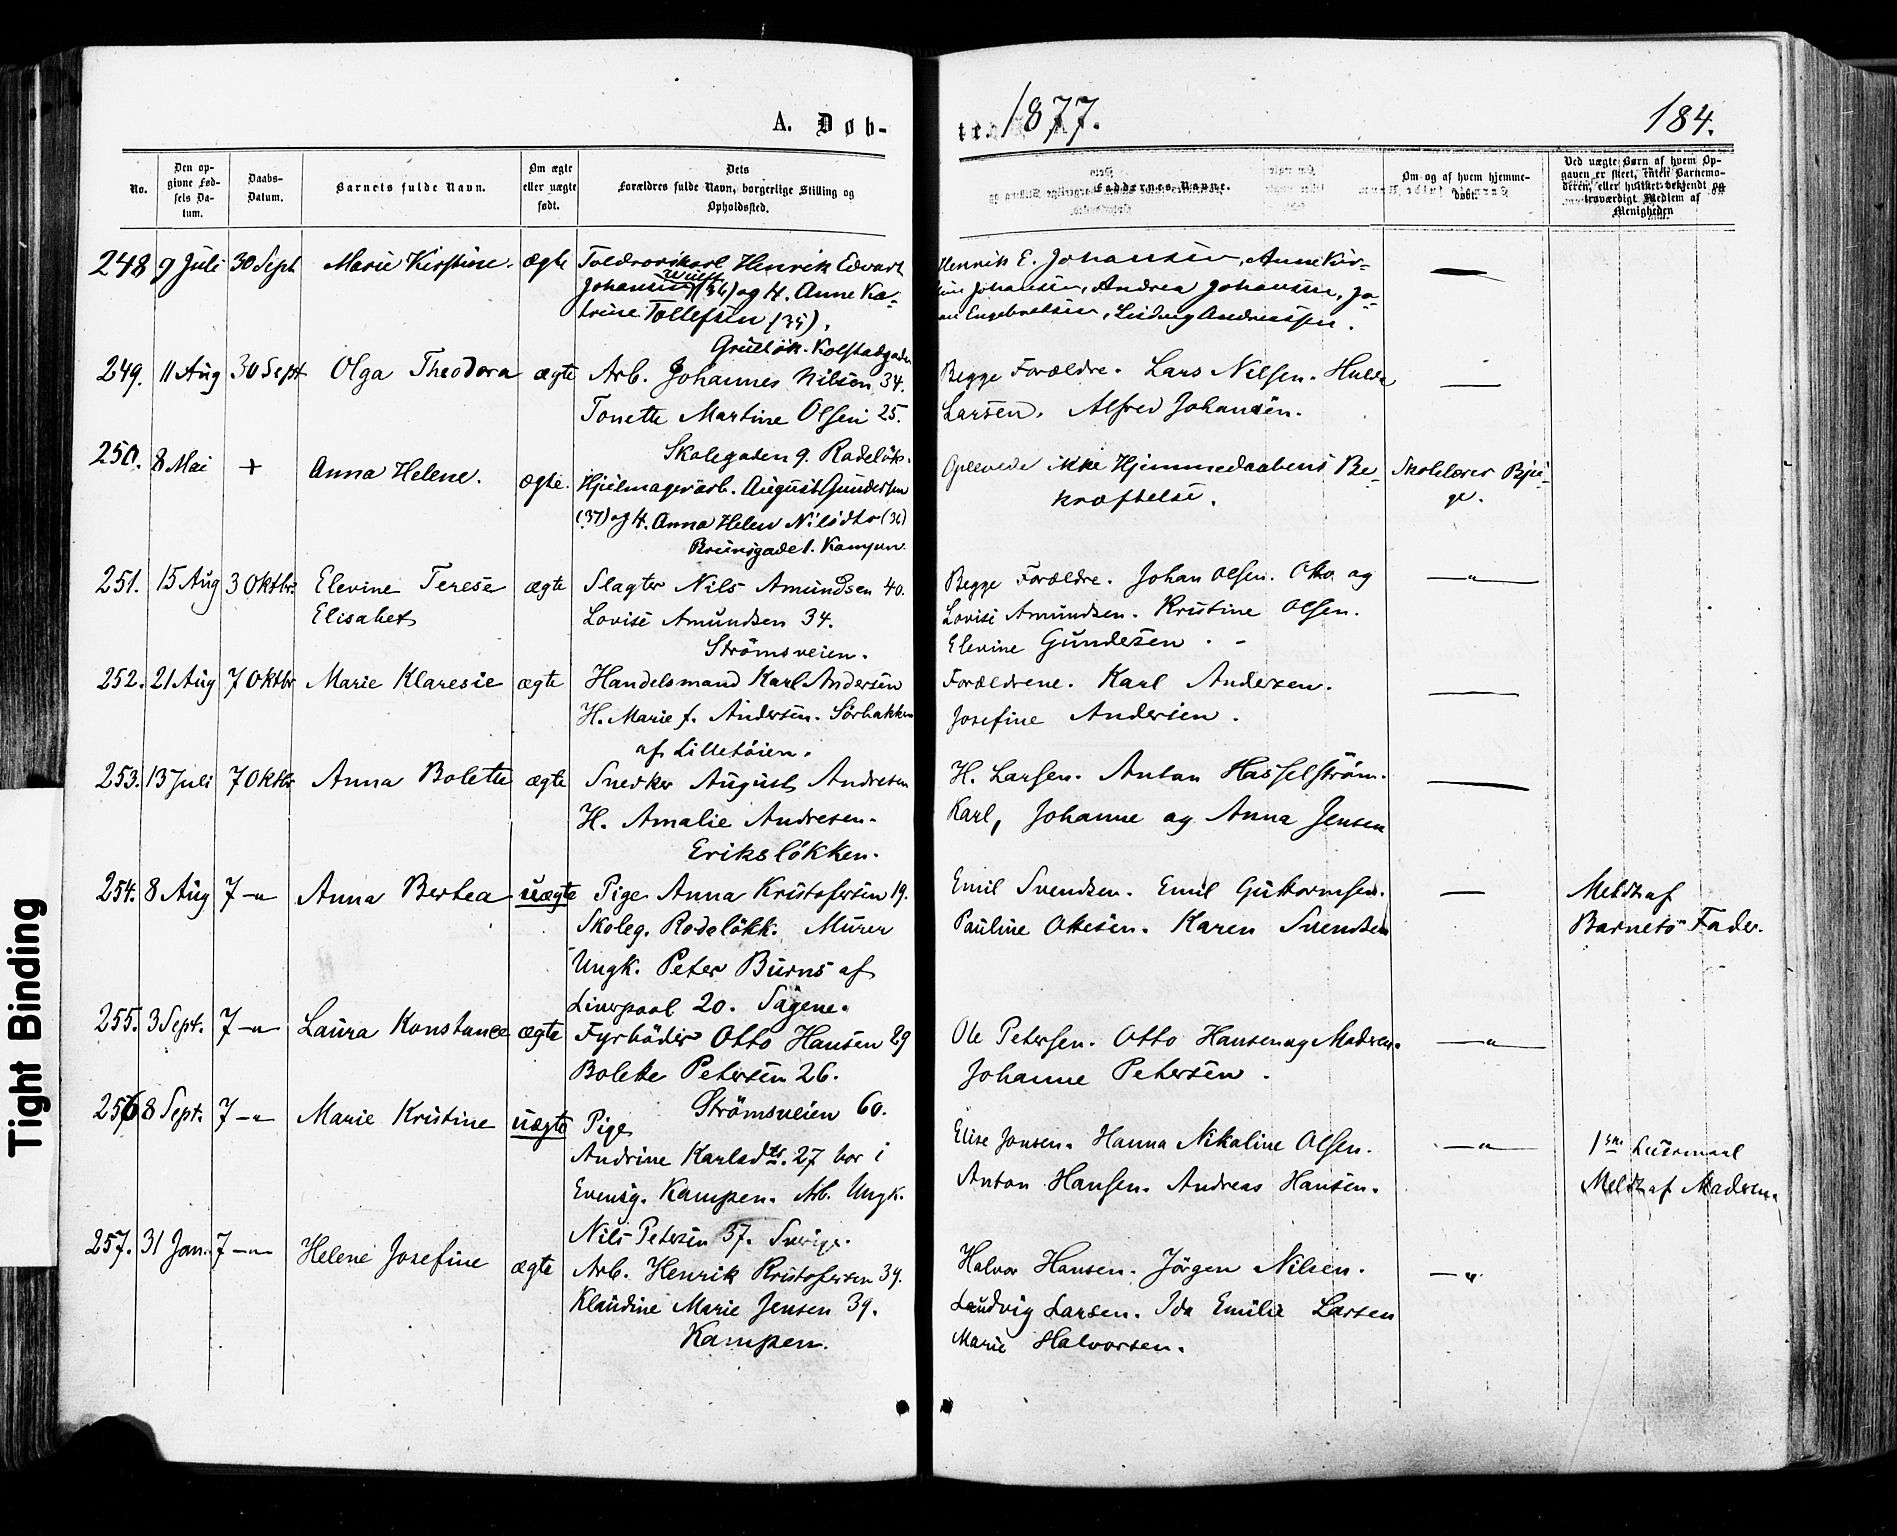 A. Døb-
te. 1877.
184.
No.
Den op-
givne Fød-
sels Da-
tum.
Daabs-
Datum.
Barnets fulde Navn.
Om ægte
eller uægte
født.
Dets
Forældres fulde Navn, borgerlige Stilling og
Opholdssted.
Faddernes Navne.
Om og af hvem hjemme-
døbt.
Ved uægte Børn af hvem Op-
gaven er skeet, enten Barnemo-
deren, eller hvilket bekjendt og
troværdigt Medlem af
Menigheden
248 9 Juli 30 Sept Marie Kirstine. ægte Henrik Edvart
Johansen (36) og H. Anne Ka-
trine Tollefsen (35),
Grülløk. Kolstadgaden
Henrik E. Johansen, Anne Kir-
Johansen, Andrea Johansen, Jo-
Engebretsen, Ludvig Andreassen.
249. 11 Aug 30 Sept Olga Theodora ægte Arb. Johannes Nilsen 34.
Tonette Martine Olsen 25.
Skolegaden 9. Rodeløk.
Begge Forældre. Lars Nilsen. Hulda
Larsen. Alfred Johansen.
250. 8 Mai + Anna Helene. ægte. Hjulmagerarb. August Gundersen
(37) og H. Anna Helene Nilsdtr (36)
Brunsgade 1. Kampen.
Oplevede ikke Hjemmedaabens Be-
kræftelse.
Skolelærer Bjü-
ge.
251. 15 Aug 3 Oktbr. Elevine Terese
Elisabet
ægte Slagter Nils Amundsen 40.
Lovise Amundsen 34.
Strömsveien.
Begge Forældre. Johan Olsen. Otto og
Lovise Amundsen. Kristine Olsen.
Elevine Gundesen.
—"—
252. 21 Aug 7 Oktbr Marie Klaresie ægte Handelsmand Karl Andersen
H. Marie f. Andersen. Sörbakken
af Lilletöien.
Forældrene. Karl Andersen.
Josefine Andersen.
253. 13 Juli 7 Oktbr Anna Bolette ægte Snedker August Andresen
H. Amalie Andresen.
Eriksløkken.
H. Larsen. Anton Hasselström.
Karl, Johanne og Anna Jensen
254. 8 Aug 7 —"— Anna Bertea uægte Pige Anna Kristofersen 19.
Skoleg. Rodeløkk. Murer
Ungk. Peter Burns af
Liverpool 20. Sagene.
Emil Svendsen. Emil Guttormsen.
Pauline Ottesen. Karen Svendsen
Meldt af
Barnets Fader.
255. 3 Sept. 7 —"— Laura Konstance ægte Fyrböder Otto Hansen 29
Bolette Petersen 26.
Strömsveien 60.
Ole Petersen. Otto Hansen og Madren.
Johanne Petersen.
—"—
256 8 Sept. 7 —"— Marie Kristine uægte Pige
Andrine Karlsdtr. 27 bor i
Evensg. Kampen. Arb. Ungk.
Nils Petersen 37. Sverige.
Elise Jonsen. Hanna Nikoline Olsen.
Anton Hansen. Andreas Hansen.
—"—
1ste Leiermaal
Meldt af Madren.
257. 31 Jan. 7 —"— Helene Josefine ægte Arb. Henrik Kristofersen 39.
Klaudine Marie Jensen 39.
Kampen.
Halvor Hansen. Jörgen Nilsen.
Laudvig Larsen. Ida Emilie Larsen
Marie Halvorsen.
—"
Tight Binding